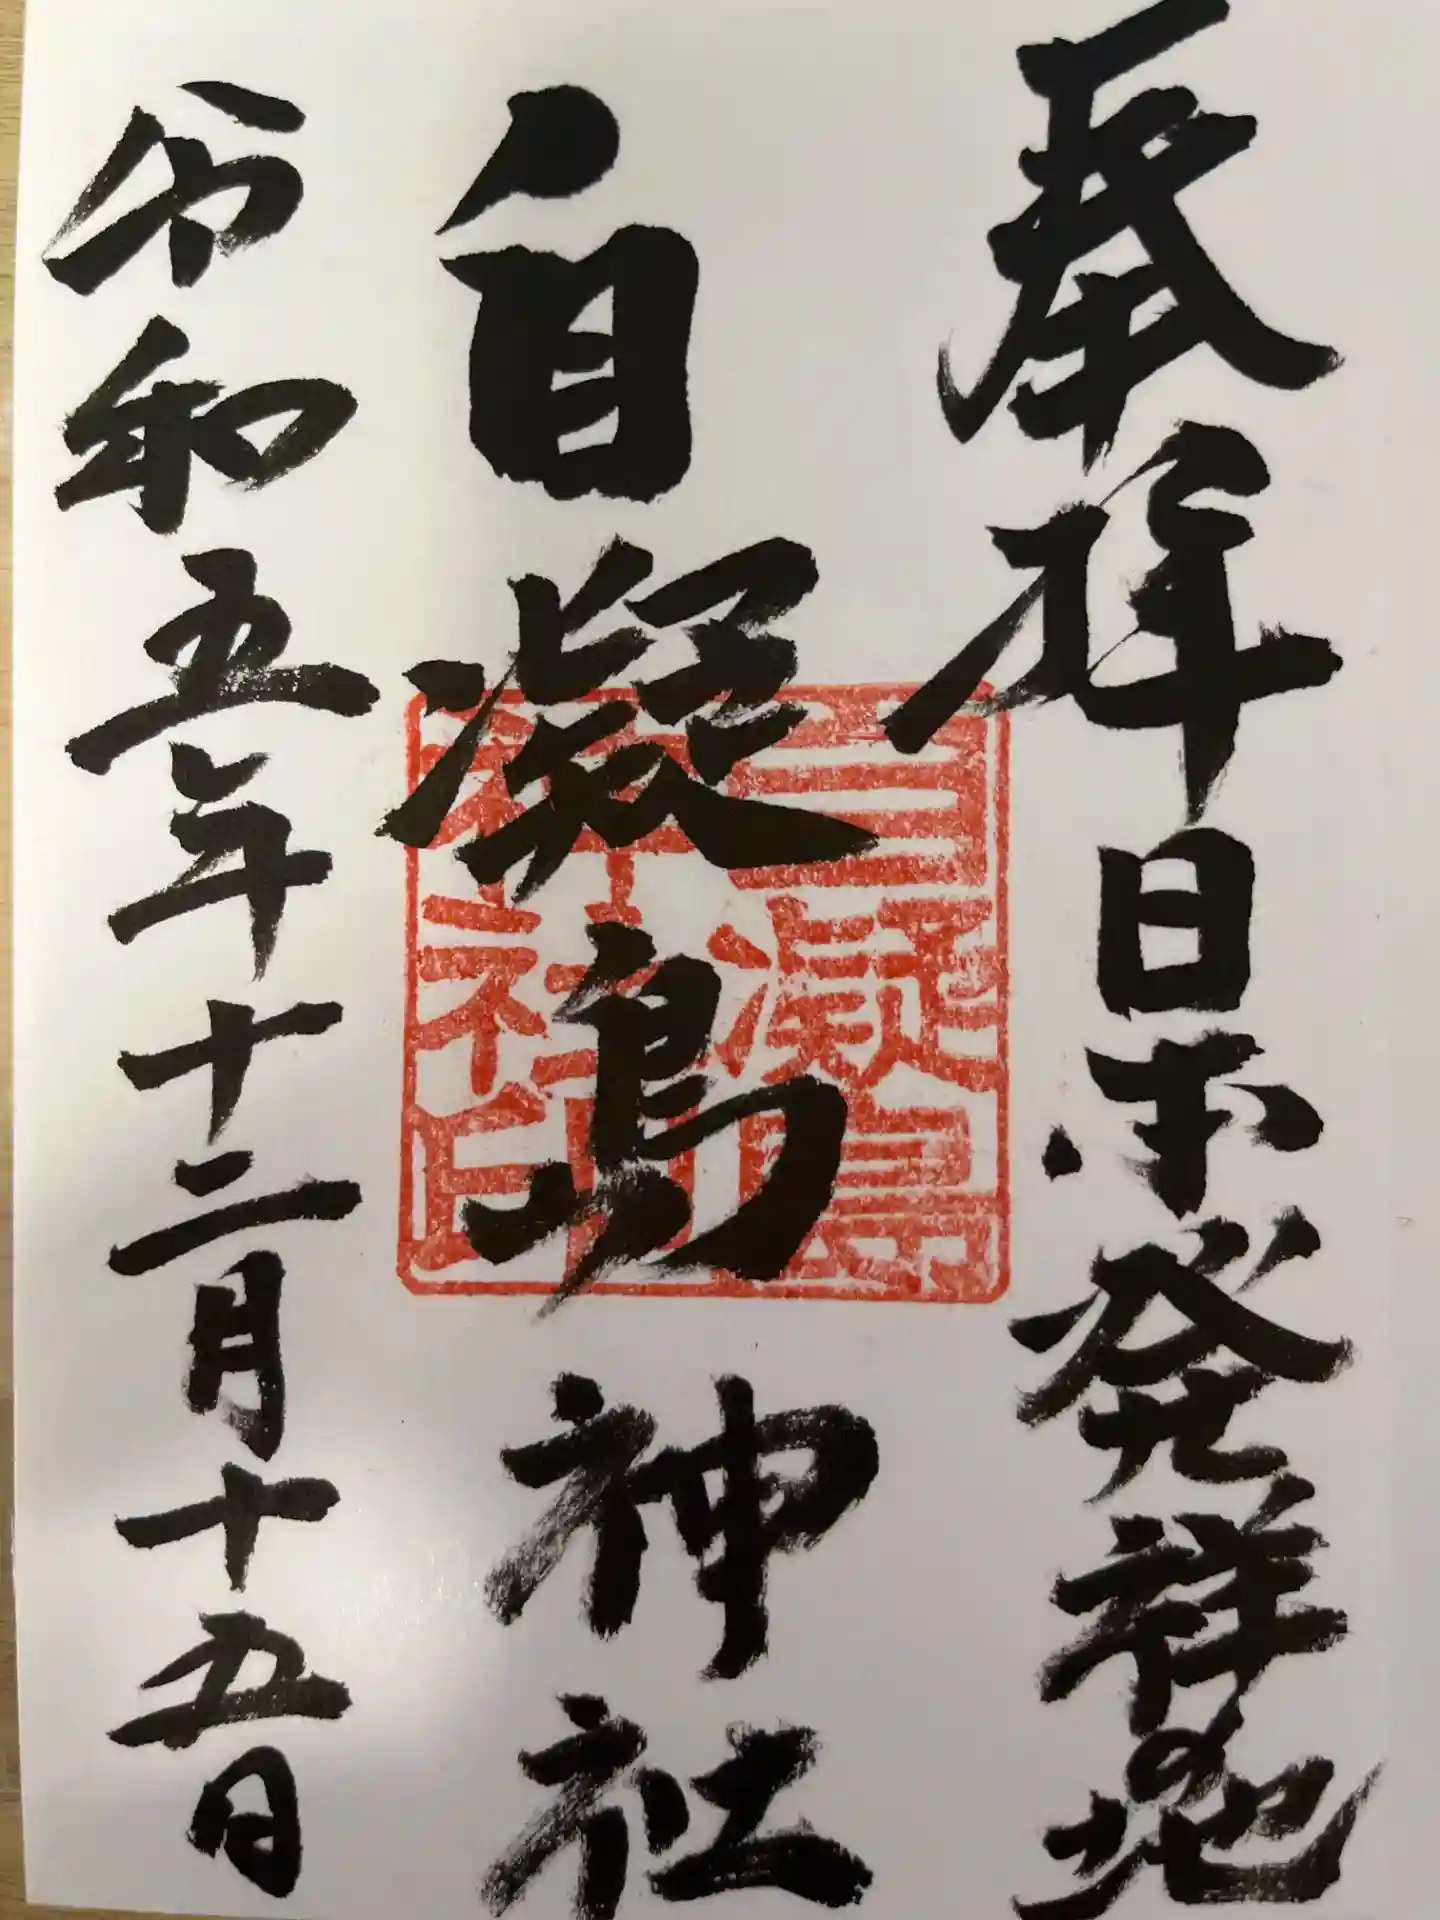 奉拝日本発祥の地
自凝島神社
令和五年十二月十五日
自凝島
神社印